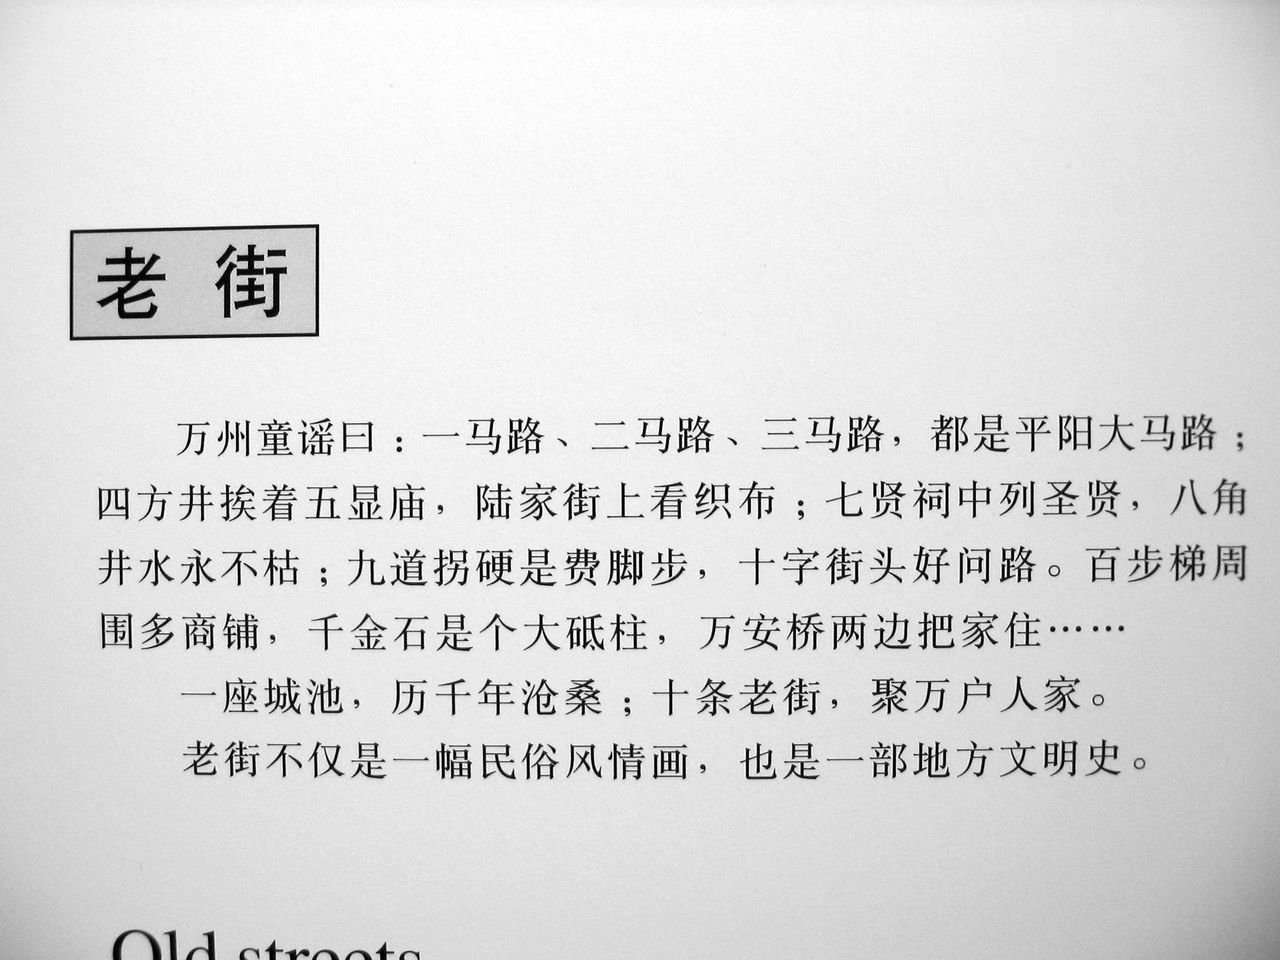 老 街
万州童谣曰：一马路、二马路、三马路，都是平阳大马路；
四方井挨着五显庙，陆家街上看织布；七贤祠中列圣贤，八角
井水永不枯；九道拐硬是费脚步，十字街头好问路。百步梯周
围多商铺，千金石是个大砥柱，万安桥两边把家住……
一座城池，历千年沧桑；十条老街，聚万户人家。
老街不仅是一幅民俗风情画，也是一部地方文明史。
Old streets